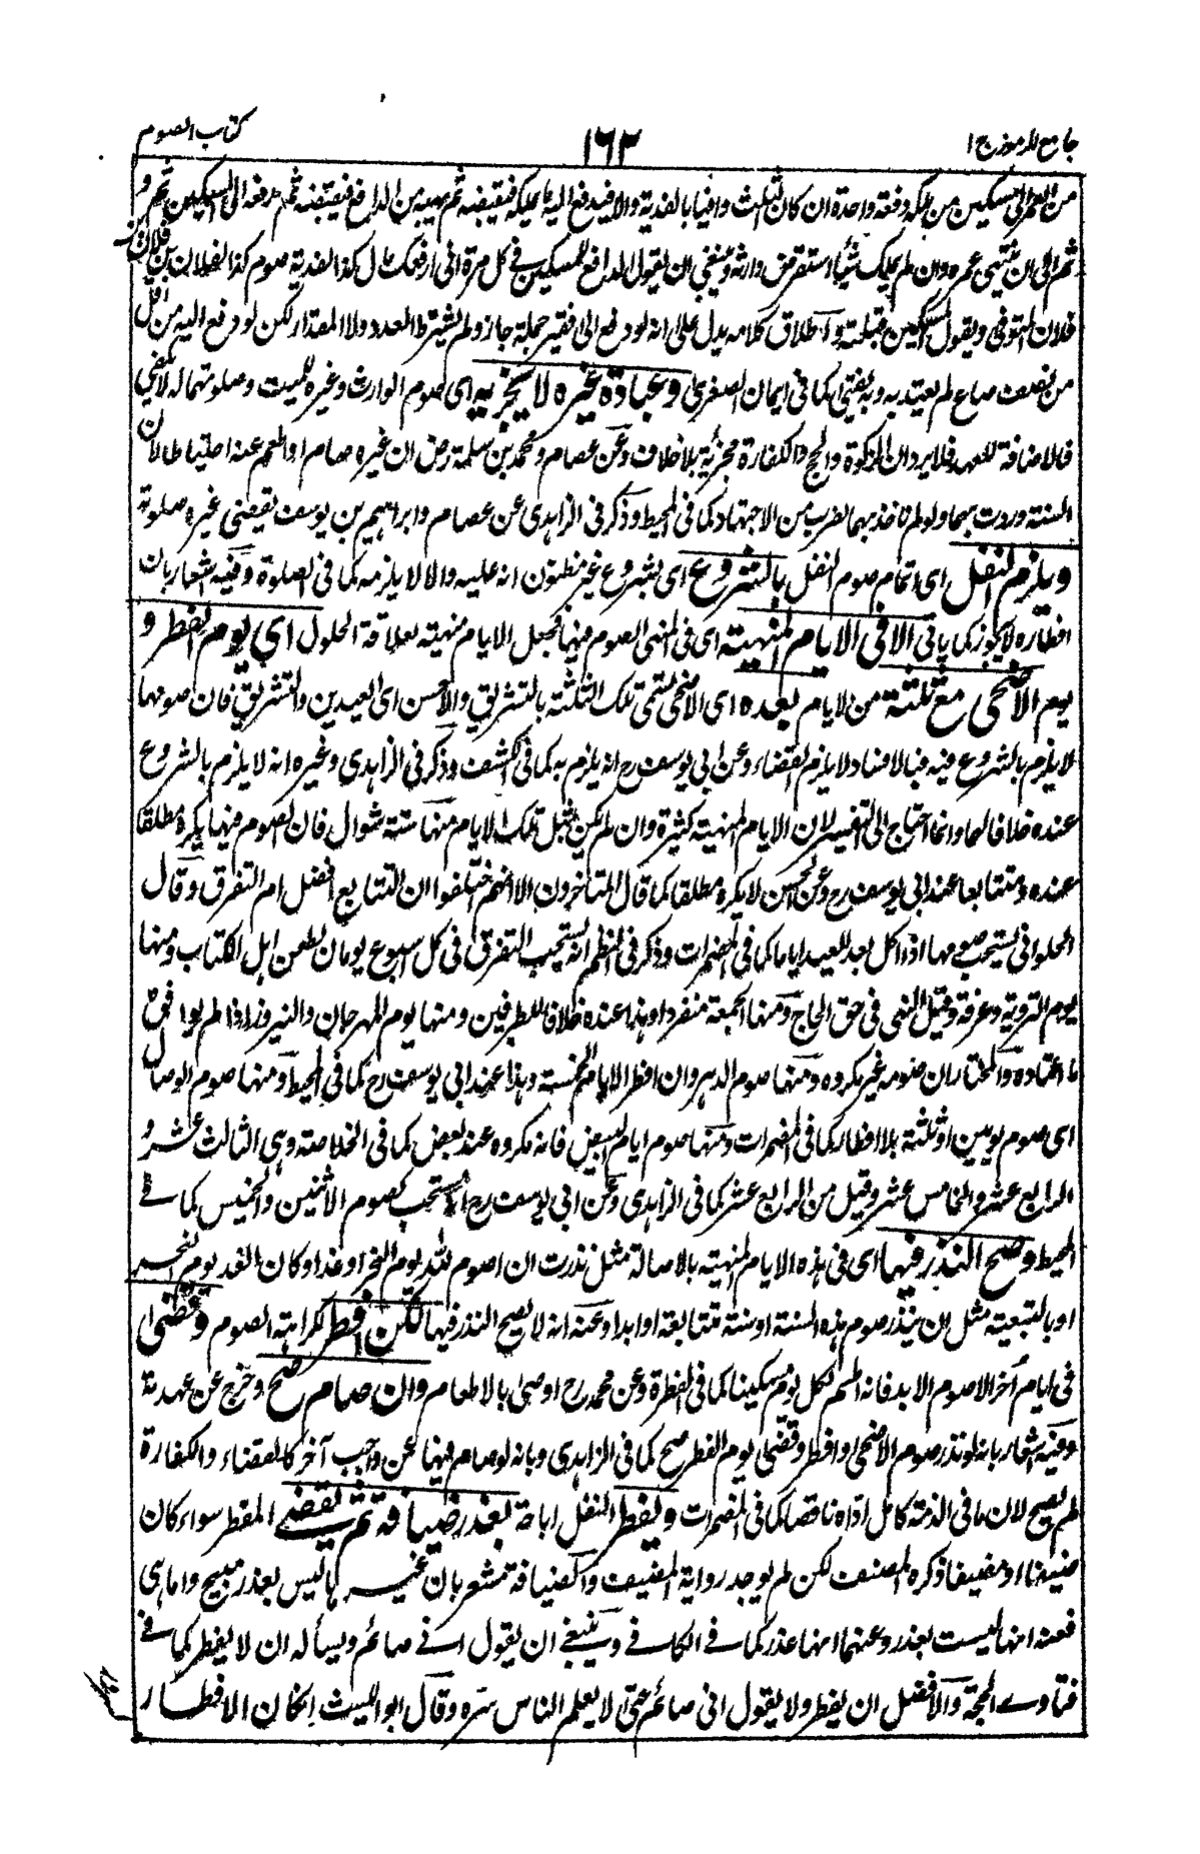 جامع الرموز ج ١
١٦٣
كتاب الصوم
من العمر الى المسكين من ملكه دفعة واحدة ان كان الثلث وافيا بالفدية والا فيدفع اليه ما يملكه فيقبضه ثم يهبه من الدافع فيقبضه ثم يدفعه الى المسكين ثم و
ثم الى ان ينتهى عمره وان لم يملك شيئا استقرض وارثه وينبغى ان يقول الدافع للمسكين فى كل مرة انى ادفعك مال كذا لفدية صوم كذا لفلان بن فلان بن
فلان المتوفى ويقول المسكين قبلته و اطلاق كلامه يدل على انه لو دفع الى فقير جملة جاز ولم يشترط العدد ولا المقدار لكن لو دفع اليه من اقل
من نصف صاع لم يعتد به وبه يفتى كما فى ايمان الصغرى وعبادة غيره لا يجزيه اى صوم الوارث وغيره للميت وصلوتهما له لا يكفى
فالاضافة للعهد فلا يرد ان الزكوة والحج والكفارة مجزية بلا خلاف وعن عصام ومحمد بن سلمة رض ان غيره صام او اطعم عنه احتياطا لان
السنة وردت بهما ولو لم ناخذ بهما لضرب من الاجتهاد كما فى المحيط وذكر فى الزاهدى عن عصام وابراهيم بن يوسف يقضى غيره صلوته
ويلزم النفل اى اتمام صوم النفل بالشروع اى بشروع غير مظنون انه عليه والا لا يلزمه كما فى الصلوة وفيه اشعار بان
افطاره لا يجوز كما ياتى الا فى الايام المنهية اى فى المنهى الصوم فيها فجعل الايام منهية لعلاقة الحلول اى يوم الفطر و
يوم الاضحى مع ثلثة من الايام بعده اى الاضحى يسمى تلك الثلثة بالتشريق والاحسن اى العيدين والتشريق فان صومها
لا يلزم بالشروع فيه فبالافساد لا يلزم القضاء وعن ابى يوسف رح انه يلزم به كما فى الكشف وذكر فى الزاهدى وغيره انه لا يلزم بالشروع
عنده خلافا لهما وانما احتاج الى التفسير لان الايام المنهية كثيرة وان لم يكن مثل تلك الايام منها ستة شوال فان الصوم فيها يكره مطلقا
عنده ومتتابعا عند ابى يوسف رح وعن الحسن لا يكره مطلقا كما قال المتاخرون الا انهم اختلفوا ان التتابع افضل ام التفرق وقال
الحلوانى يستحب صومها اذا اكل بعد العيد اياما كما فى المضمرات وذكر فى النظم انه يستحب التفرق فى كل اسبوع يومان لطعن اهل الكتاب ومنها
يوم التروية وعرفة وقيل النهى فى حق الحاج ومنها الجمعة منفردا وهذا عنده خلافا للطرفين ومنها يوم المهرجان والنيروز اذا لم يوافق
ما اعتاده والمختار ان صومه غير مكروه ومنها صوم الدهر وان افطر الايام الخمسة وهذا عند ابى يوسف رح كما فى المحيط ومنها صوم الوصال
اى صوم يومين او ثلثة بلا افطار كما فى المضمرات ومنها صوم ايام البيض فانه مكروه عند بعض كما فى الخلاصة وهى الثالث عشر و
الرابع عشر والخامس عشر وقيل من الرابع عشر كما فى الزاهدى وعن ابى يوسف رح انه يستحب كصوم الاثنين والخميس كما فى
المحيط وصح النذر فيها اى فى هذه الايام المنهية بالاصالة مثل نذرت ان اصوم لله يوم النحر او غدا وكان الغد يوم النحر
او بالتبعية مثل ان ينذر صوم هذه السنة او سنة متتابعة او ابدا وعنه انه لا يصح النذر فيها لكن افطر لكراهته الصوم وقضى
فى ايام اخر الا صوم الابد فانه اطعم لكل يوم مسكينا كما فى النظرة وعن محمد رح اوصى بالاطعام وان صام صح وخرج عن عهدته
وفيه اشعار بانه لو نذر صوم الاضحى وافطر وقضى يوم الفطر صح كما فى الزاهدى وبانه لو صام فيها عن واجب آخر كالقضاء والكفارة
لم يصح لان ما فى الذمة كامل اداه ناقصا كما فى المضمرات ويفطر النفل اباحة بعذر ضيافة ثم يقضى المفطر سواء كان
ضيفا او مضيفا ذكره المصنف لكن لم يوجد رواية المضيف والضيافة تشعر بان غيرها ليس بعذر مبيح واما هى
فعنه انها ليست بعذر وعنهما انها عذر كما فى الكافى وينبغى ان يقول انى صائم ويسأله ان لا يفطر كما فى
فتاوى الحجة والافضل ان يفطر ولا يقول انى صائم حتى لا يعلم الناس سره وقال ابو الليث ان كان الافطار